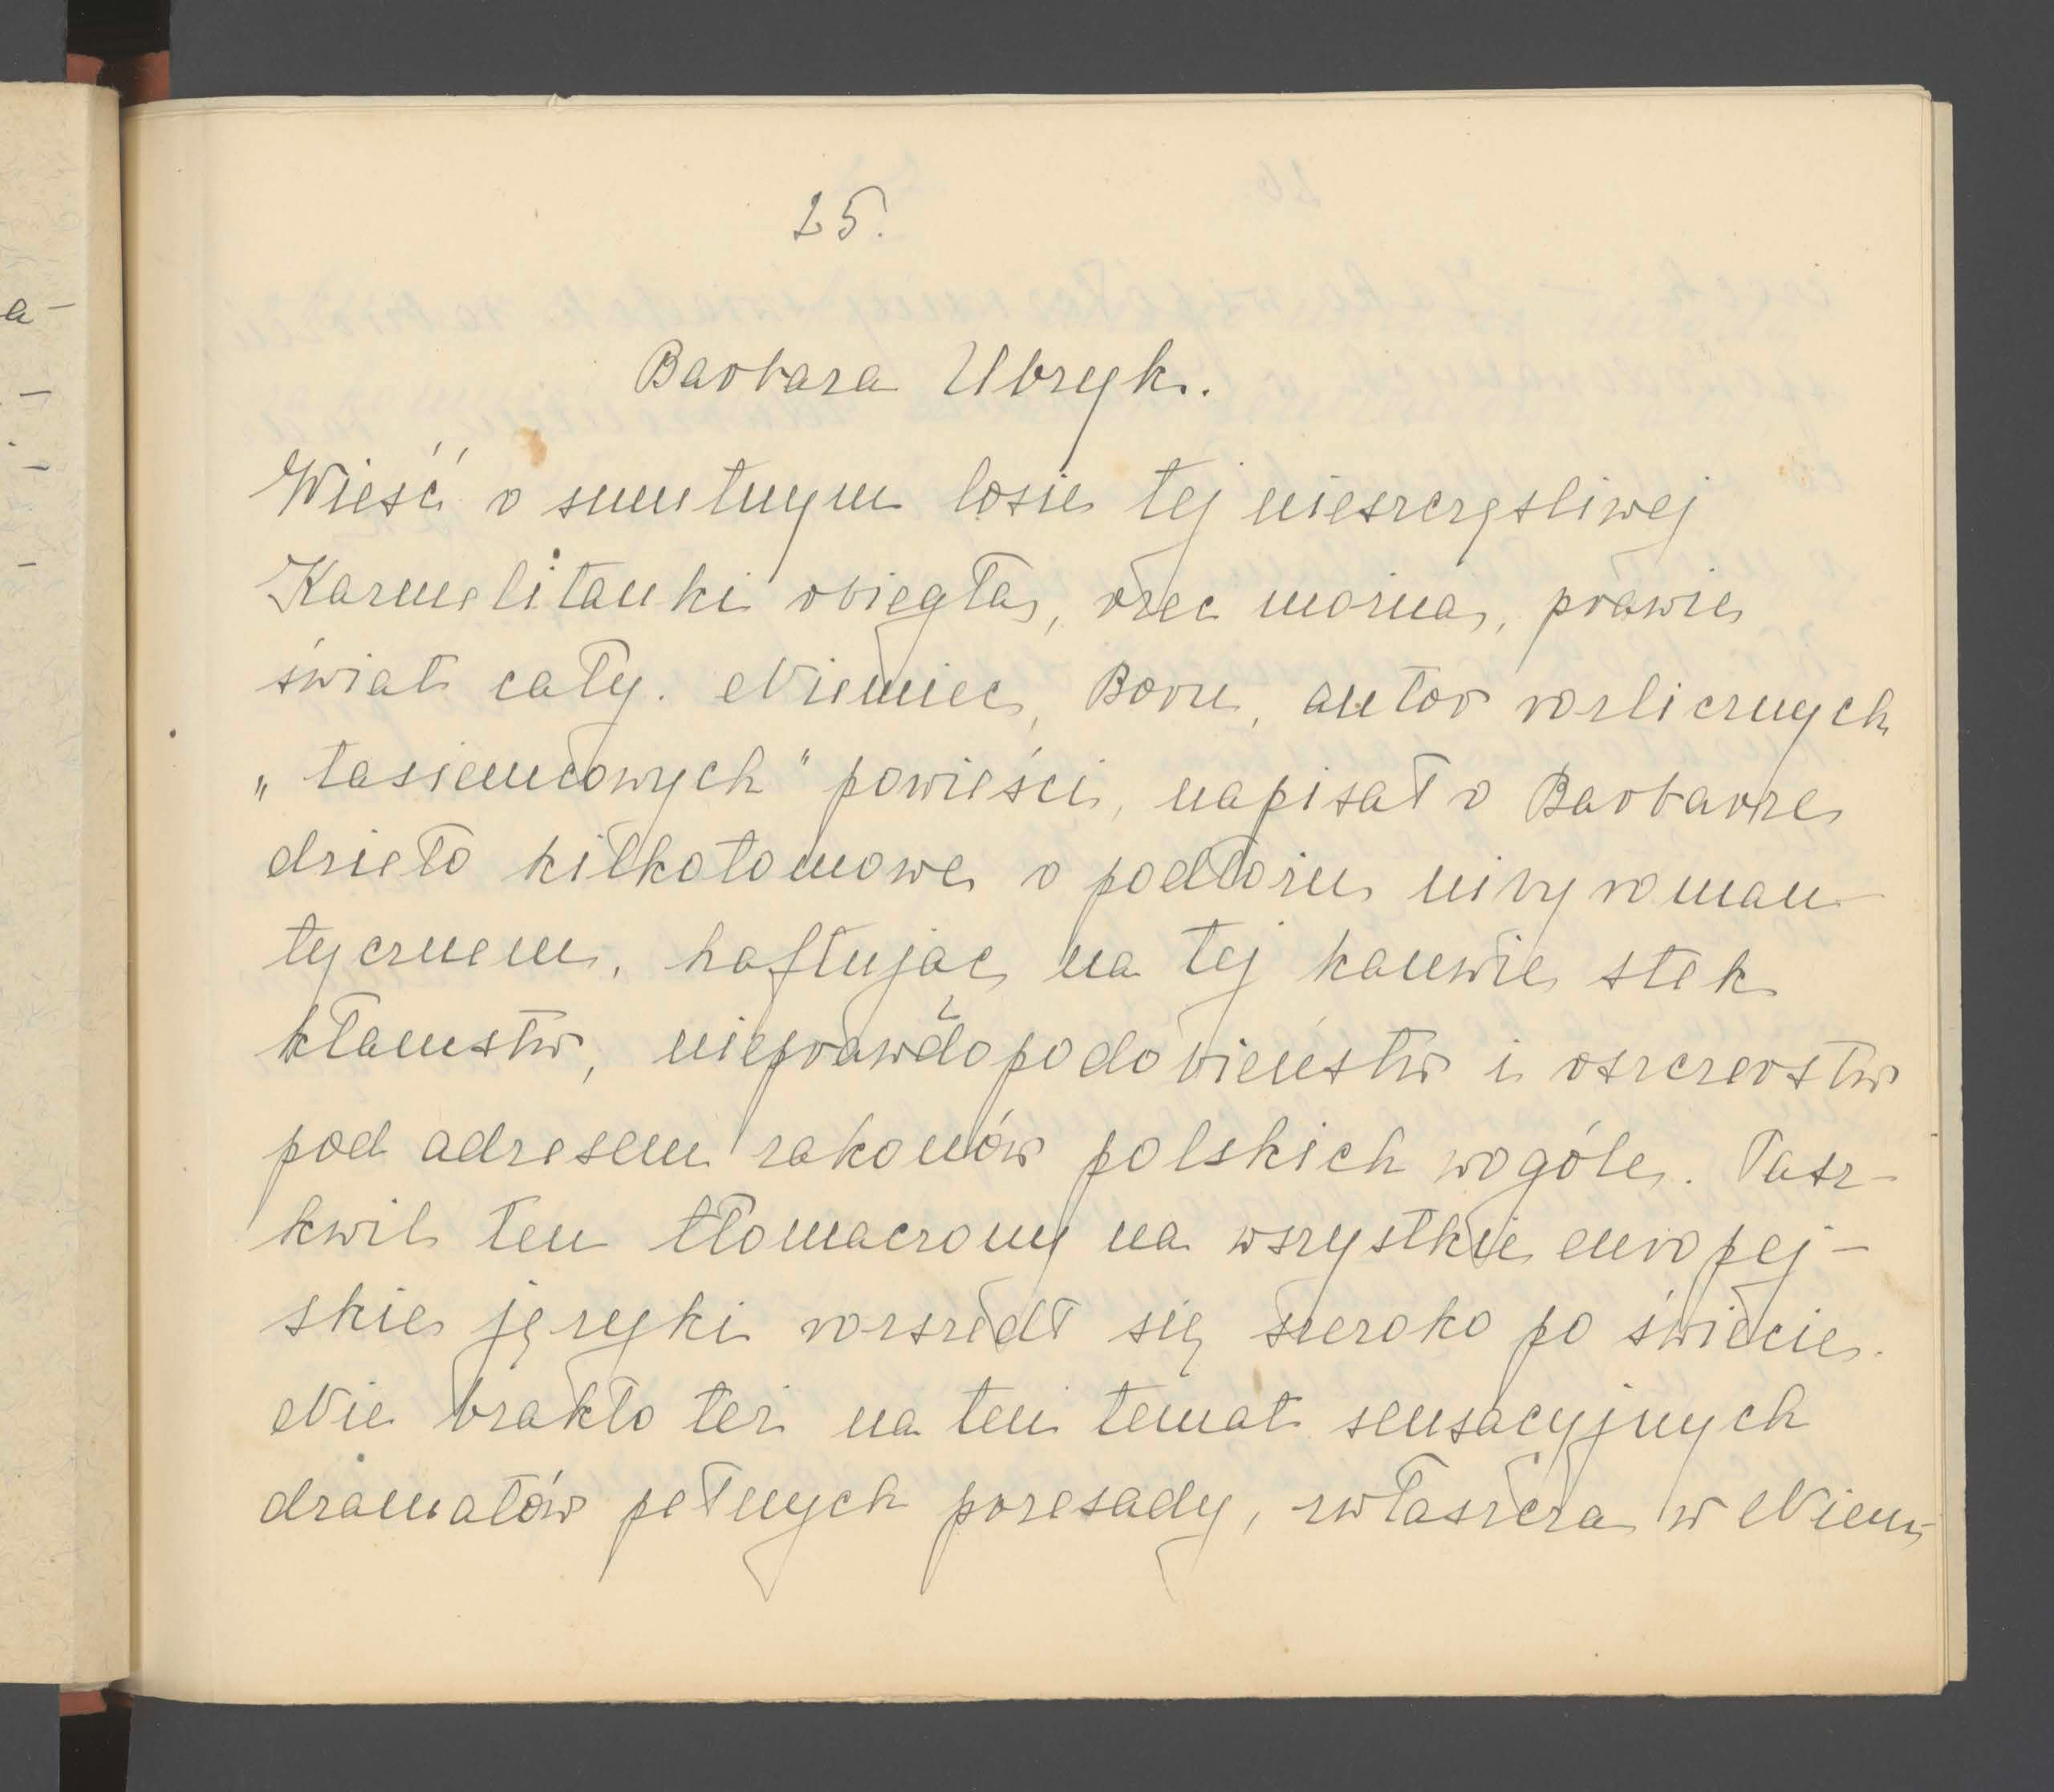 a-
25.
Barbara Ubryk.
Wieść o smutnym losie tej nieszczęsliwej
Karmelitanki obiegła, rzec można, prawie
świat cały. Niemiec, Born, autor rozlicznych
„tasiemcowych" powieści, napisał o Barbarze
dzieło kilkotomowe o podłożu niby roman
tycznem, haftując na tej kanwie stek
kłamstw, nieprawdopodobieństw i oszczerstw
pod adresem zakonów polskich wogóle. Pasz-
kwil ten tłomaczony na wszystkie europej-
skie języki rozszedł się szeroko po świecie.
Nie brakło też na ten temat sensacyjnych
dramatów pełnych przesady, zwłaszcza w Niem-